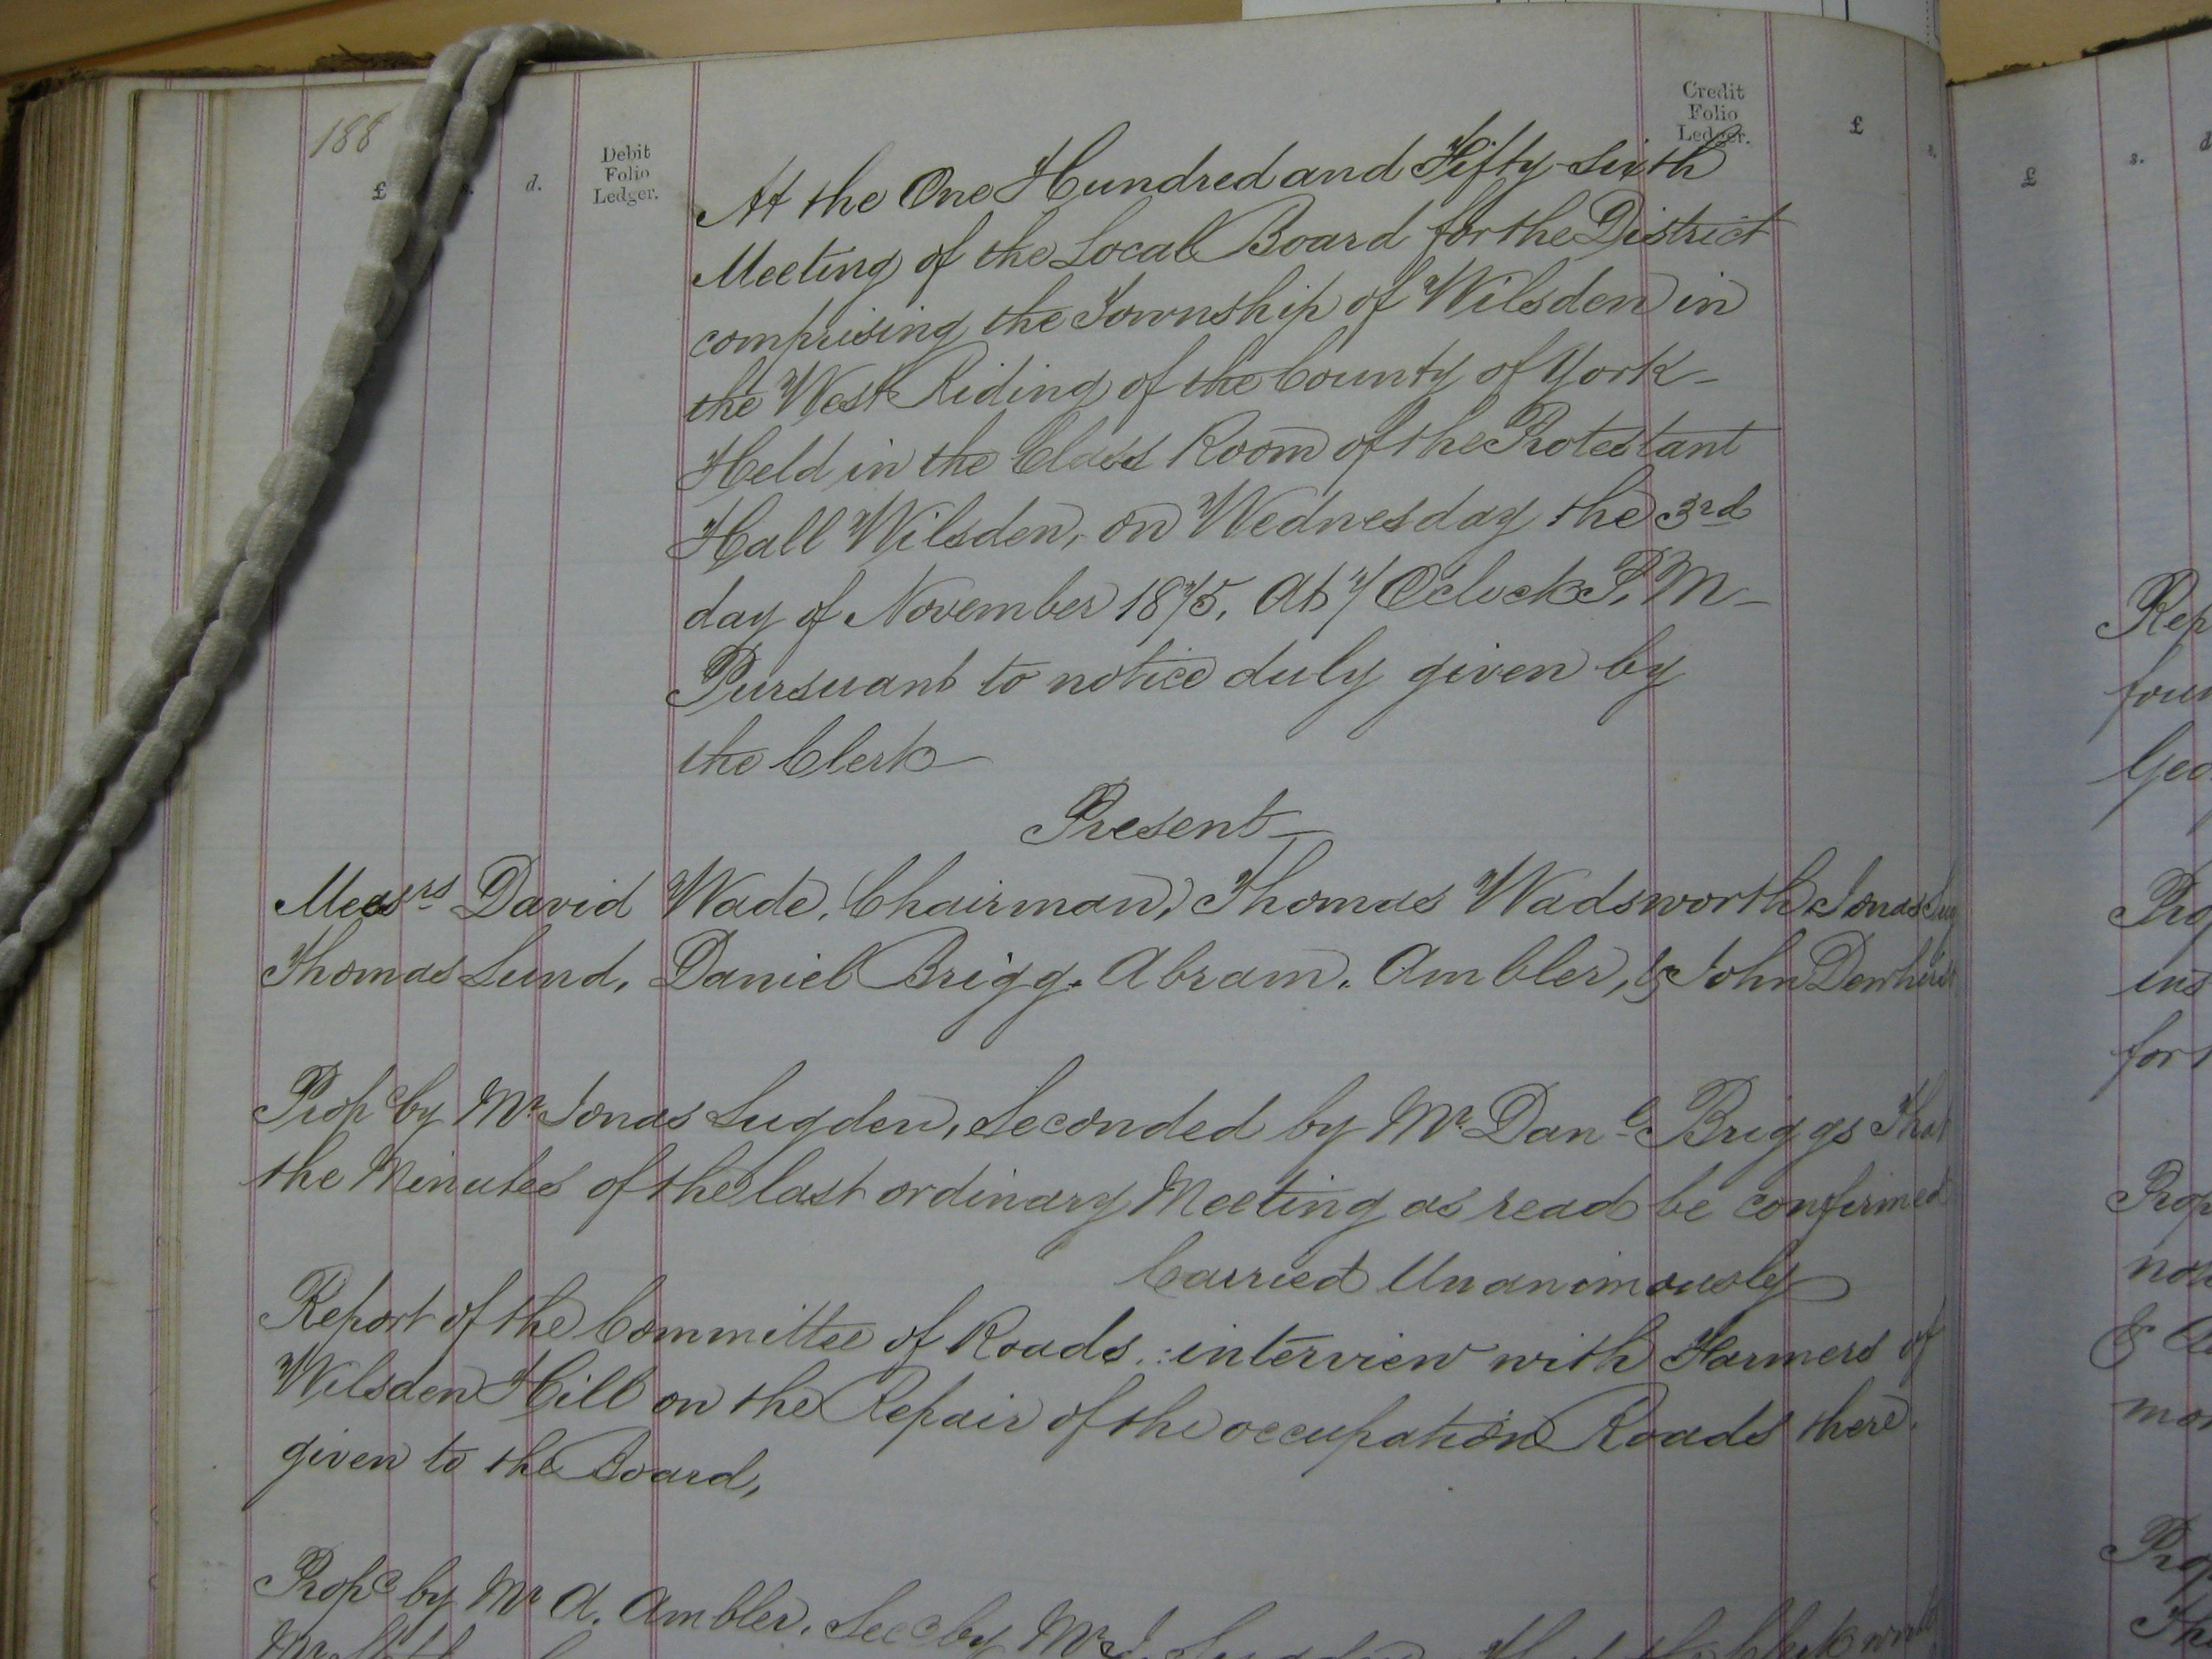 188
£ d. Debit Folio Ledger.
Credit Folio Ledger. £ s.
At the One Hundred and Fifty-sixth
Meeting of the Local Board for the District
comprising the Township of Wilsden in
the West Riding of the County of York-
Held in the Class Room of the Protestant
Hall Wilsden, on Wednesday the 3rd
day of November 1875, At 7 O'Clock P.M-
Pursuant to notice duly given by
the Clerk
Present-
Messrs David Wade, Chairman, Thomas Wadsworth Jonas
Thomas Lund, Daniel Brigg. Abram. Ambler, & John Dewhirst
Propd by Mr Jonas Sugden, Seconded by Mr Danl Briggs That
the Minutes of the last ordinary Meeting as read be confirmed
Carried Unanimously
Report of the Committee of Roads.: interview with Farmers of
Wilsden Hill on the Repair of the occupation Roads there.
given to the Board,
Propd by Mr A. Ambler, Secd by Mr J. Sugden That the Clerk write
£ s. d
Rep
four
Geo
Pro
ins
for
Prop
now
&
mo
Pro
Th